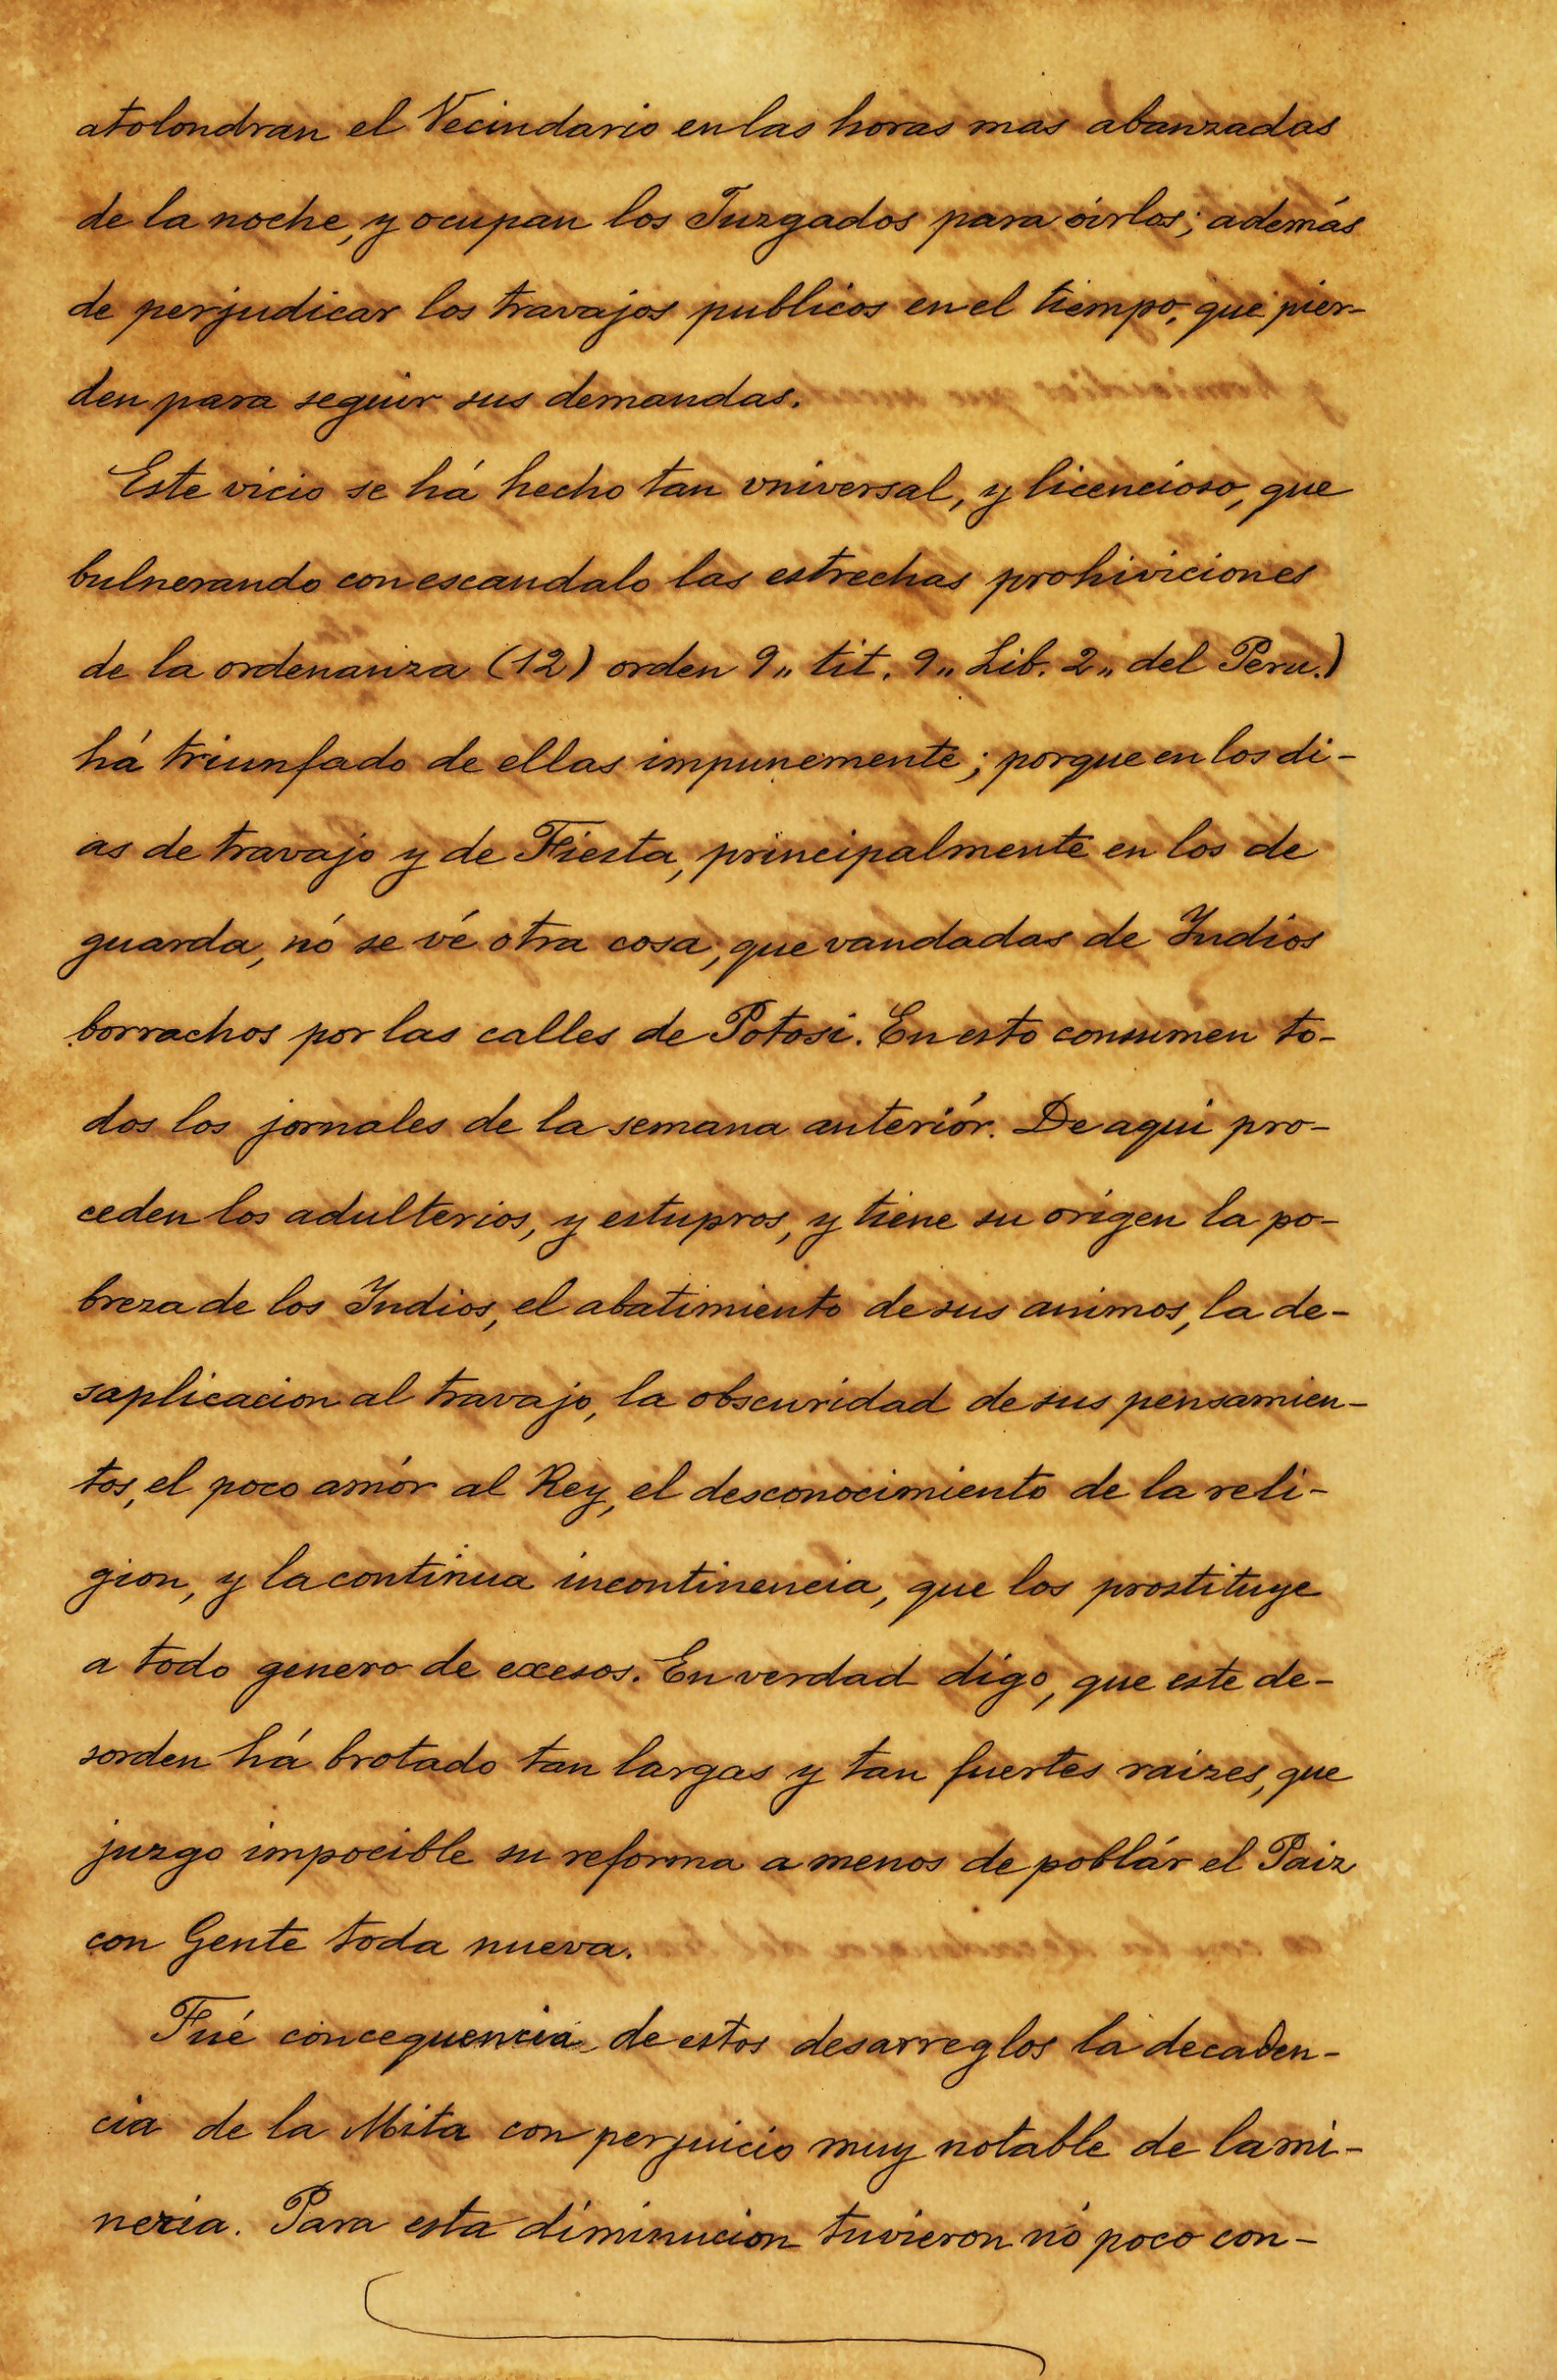 atolondran el Vecindario en las horas mas abanzadas
de la noche, y ocupan los Juzgados para óirlos; además
de perjudicar los travajos publicos en el tiempo, que pier-
den para seguir sus demandas.
Este vicio se há hecho tan vniversal, y licencioso, que
bulnerando con escandalo las estrechas prohiviciones
de la ordenanza (12) orden 9,, tit. 9,, Lib. 2,, del Peru.)
há triunfado de ellas impunemente; porque en los di-
as de travajo y de Fiesta, principalmente en los de
guarda, nó se vé otra cosa, que vandadas de Indios
borrachos por las calles de Potosi. En esto consumen to-
dos los jornales de la semana anteriór. De aqui pro-
ceden los adulterios, y estupros, y tiene su origen la po-
breza de los Indios, el abatimiento de sus animos, la de-
saplicacion al travajo, la obscuridad de sus pensamien-
tos, el poco amór al Rey, el desconocimiento de la reli-
gion, y la continua incontinencia, que los prostituye
a todo genero de exesos. En verdad digo, que este de-
sorden há brotado tan largas y tan fuertes raizes, que
juzgo impocible su reforma a menos de poblár el Paiz
con Gente toda nueva.
Fué concequencia de estos desarreglos la decaden-
cia de la Mita con perjuicio muy notable de la mi-
neria. Para esta diminucion tuvieron nó poco con-